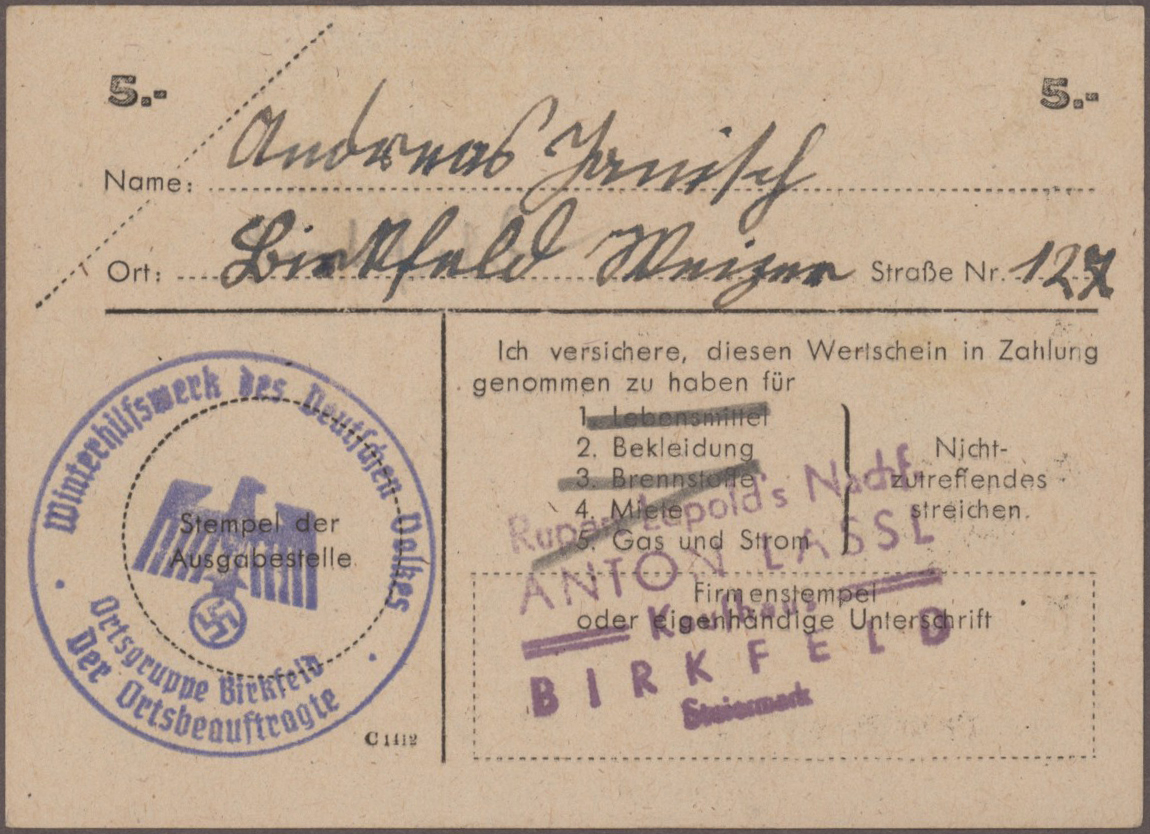 5.- 5.-
Name: Andreas Janisch
Ort: Birkfeld Weizer Straße Nr. 127
Winterhilfswerk des Deutschen Volkes
Stempel der
Ausgabestelle
Ortsgruppe Birkfeld
Der Ortsbeauftragte
C 1412
Ich versichere, diesen Wertschein in Zahlung
genommen zu haben für
1. Lebensmittel
2. Bekleidung
3. Brennstoffe
4. Miete
5. Gas und Strom
Nicht-
zutreffendes
streichen.
Firmenstempel
oder eigenhändige Unterschrift
Rupert Leopold's Nachf.
ANTON LASSL
Kaufhaus
BIRKFELD
Steiermark